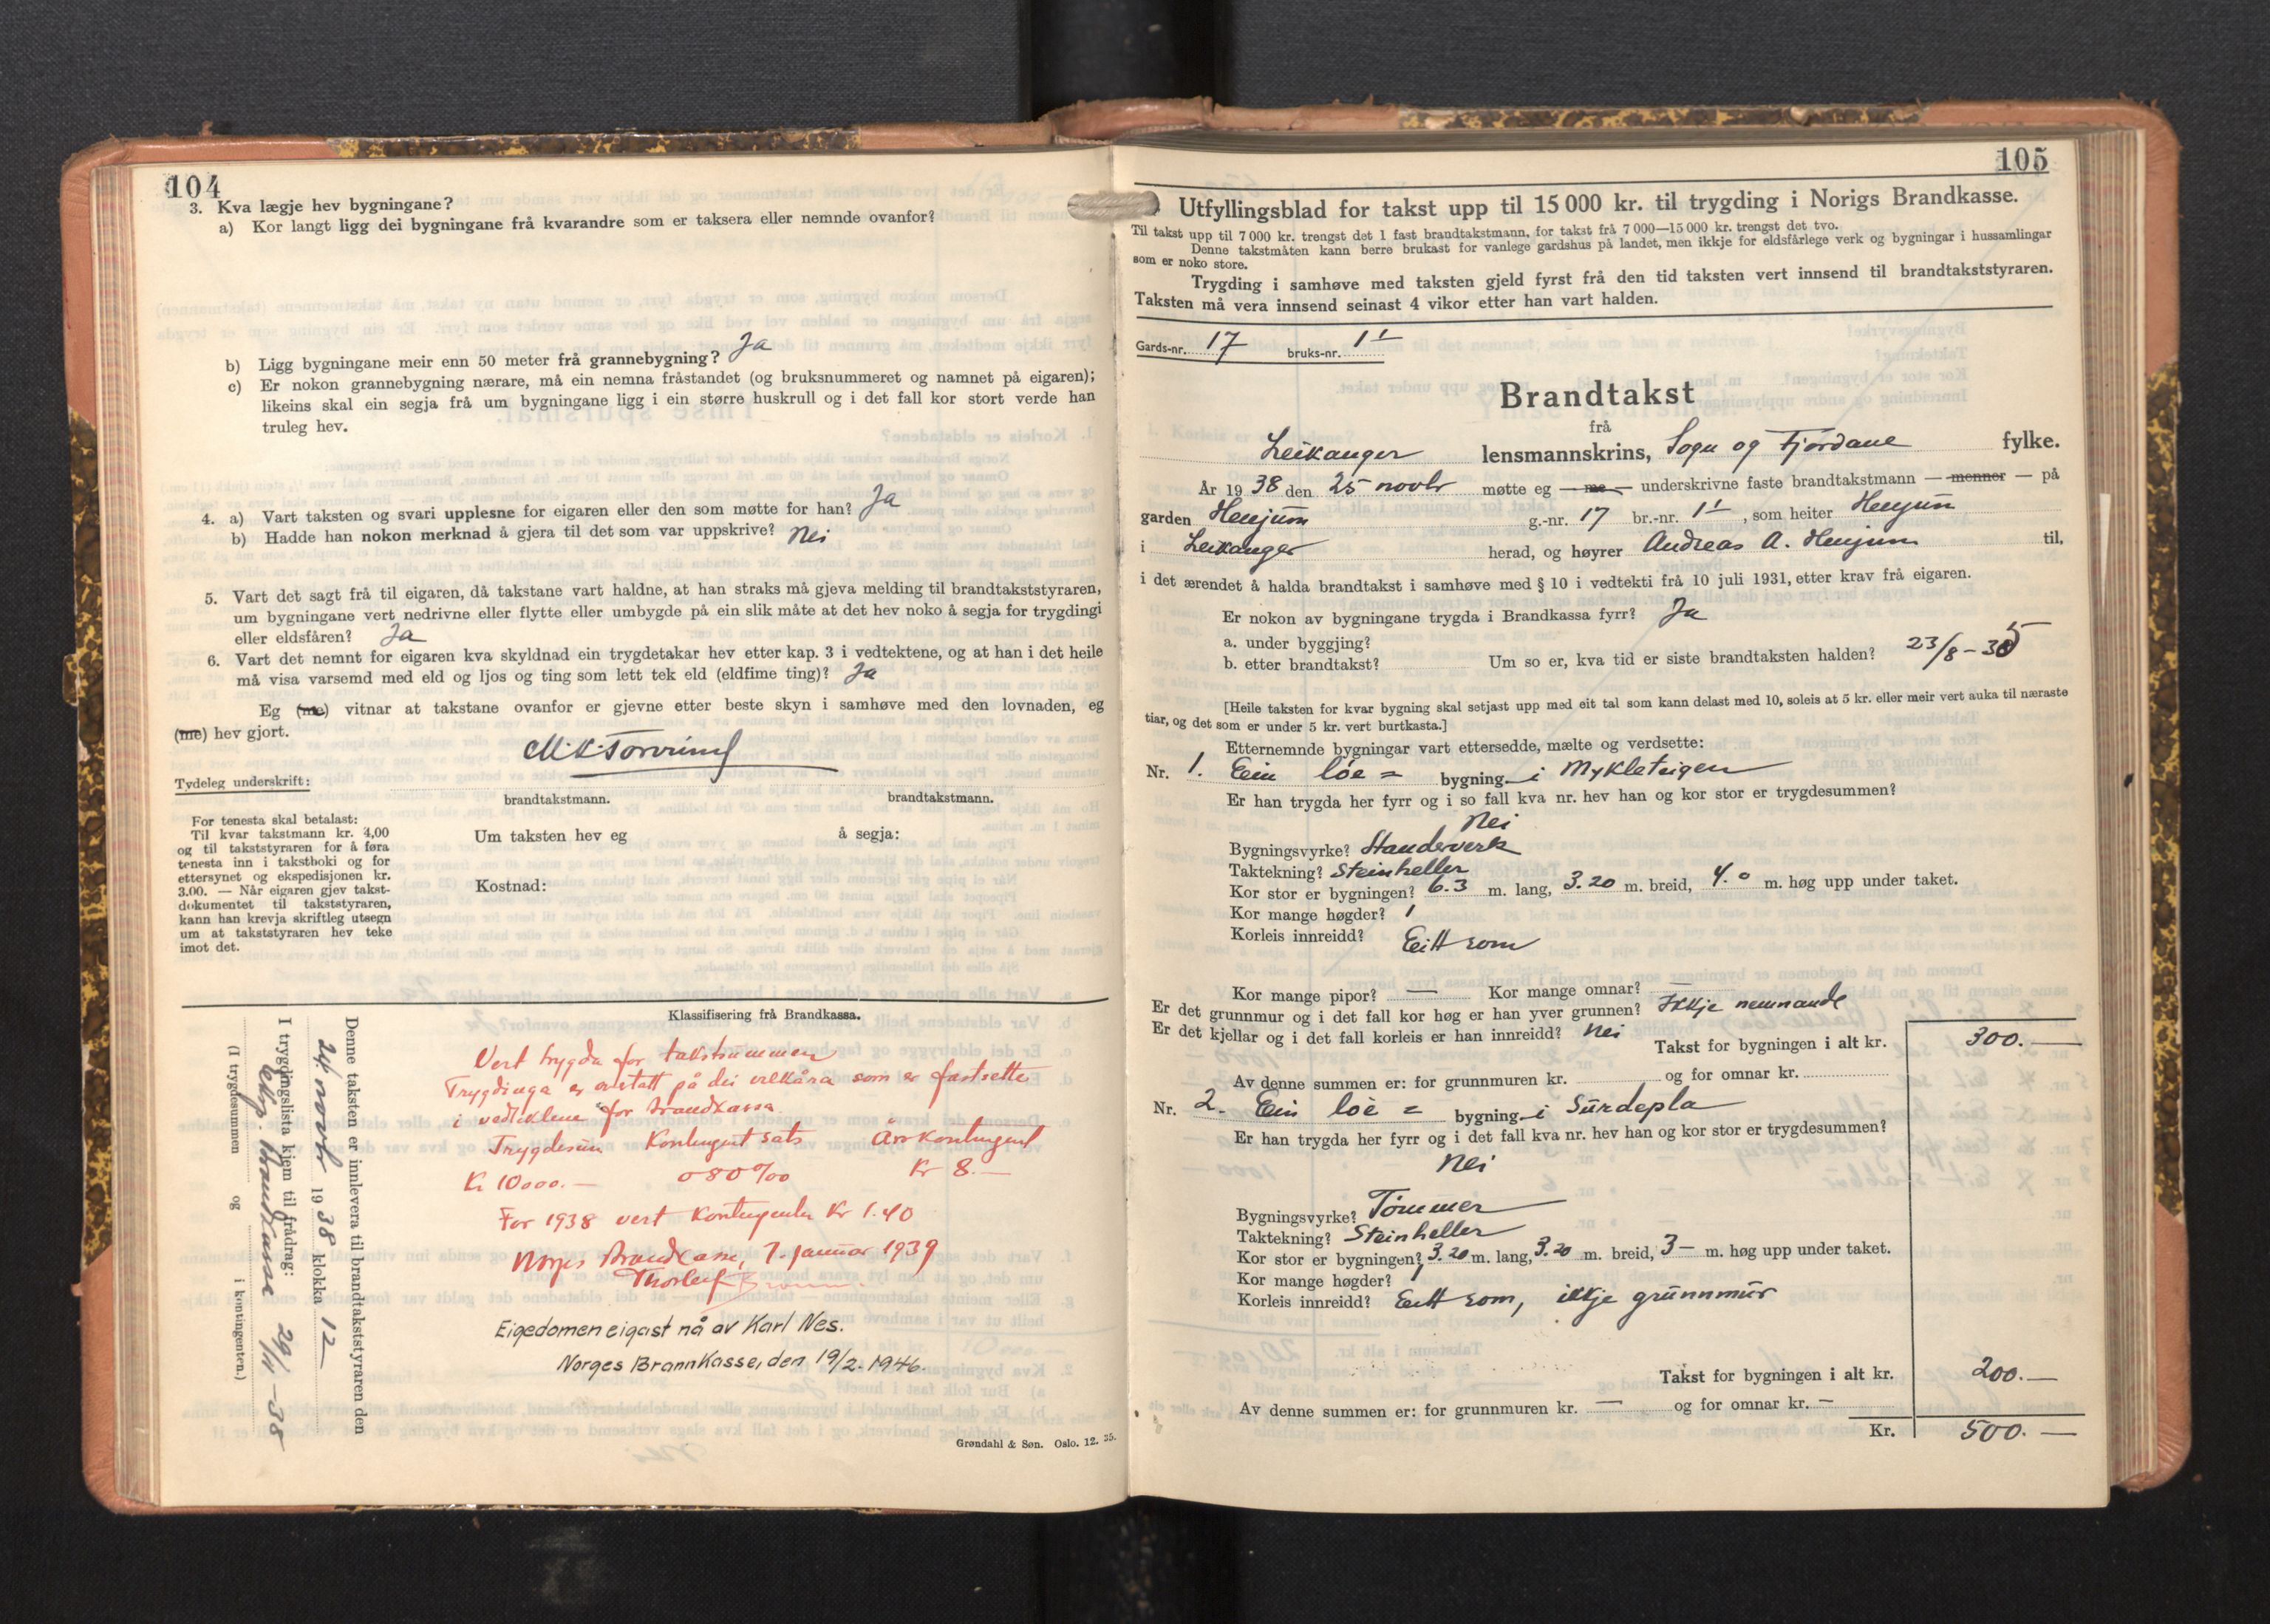 104
3. Kva lægje hev bygningane?
a) Kor langt ligg dei bygningane frå kvarandre som er taksera eller nemnde ovanfor?
b) Ligg bygningane meir enn 50 meter frå grannebygning? Ja
c) Er nokon grannebygning nærare, må ein nemna fråstandet (og bruksnummeret og namnet på eigaren);
likeins skal ein segja frå um bygningane ligg i ein større huskrull og i det fall kor stort verde han
truleg hev.
4. a) Vart taksten og svari upplesne for eigaren eller den som møtte for han? Ja
b) Hadde han nokon merknad å gjera til det som var uppskrive? Nei
5. Vart det sagt frå til eigaren, då takstane vart haldne, at han straks må gjeva melding til brandtakststyraren,
um bygningane vert nedrivne eller flytte eller umbygde på ein slik måte at det hev noko å segja for trygdingi
eller eldsfåren? Ja
6. Vart det nemnt for eigaren kva skyldnad ein trygdetakar hev etter kap. 3 i vedtektene, og at han i det heile
må visa varsemd med eld og ljos og ting som lett tek eld (eldfime ting)? Ja
Eg (me) vitnar at takstane ovanfor er gjevne etter beste skyn i samhøve med den lovnaden, eg
(me) hev gjort.
Tydeleg underskrift:
brandtakstmann. brandtakstmann.
For tenesta skal betalast:
Til kvar takstmann kr. 4,00
og til takststyraren for å føra
tenesta inn i takstboki og for
ettersynet og ekspedisjonen kr.
3.00. — Når eigaren gjev takst-
dokumentet til takststyraren,
kann han krevja skriftleg utsegn
um at takststyraren hev teke
imot det.
Um taksten hev eg å segja:
Kostnad:
Denne taksten er innlevera til brandtakststyraren den
24 novbr 1938 klokka 12
I trygdingslista kjem til frådrag:
eksp. Brandkasse 29/11 - 38
(I trygdesummen og i kontingenten.)
Klassifisering frå Brandkassa.
Vert trygda for takstsummen
Trygdinga er avstatt på dei vilkåra som er fastsette
i vedtektene for Brandkassa.
Trygdesum Kontingent sats Årskontingent
Kr 10000.— 0 80 ‰ Kr 8.—
For 1938 vert kontingenten Kr 1.40
Norges Brandkasse, 7. januar 1939
Thorleif
Eigedomen eigast nå av Karl Nes.
Norges Brannkasse, den 19/2. 1946.
Grøndahl & Søn. Oslo. 12. 35.
105
Utfyllingsblad for takst upp til 15 000 kr. til trygding i Norigs Brandkasse.
Til takst upp til 7 000 kr. trengst det 1 fast brandtakstmann, for takst frå 7 000—15 000 kr. trengst det tvo.
Denne takstmåten kann berre brukast for vanlege gardshus på landet, men ikkje for eldsfårlege verk og bygningar i hussamlingar
som er noko store.
Trygding i samhøve med taksten gjeld fyrst frå den tid taksten vert innsend til brandtakststyraren.
Taksten må vera innsend seinast 4 vikor etter han vart halden.
Gards-nr. 17 bruks-nr. 1 1
Brandtakst
frå
Leikanger lensmannskrins, Sogn og Fjordane fylke.
År 1938 den 25 novbr møtte eg — me — underskrivne faste brandtakstmann — menner — på
garden Henjum g.-nr. 17 br.-nr. 1 1, som heiter Henjum
i Leikanger herad, og høyrer Andreas A. Henjum til,
i det ærendet å halda brandtakst i samhøve med § 10 i vedtekti frå 10 juli 1931, etter krav frå eigaren.
Er nokon av bygningane trygda i Brandkassa fyrr? Ja
a. under byggjing?
b. etter brandtakst? Um so er, kva tid er siste brandtaksten halden? 23/8 - 35
[Heile taksten for kvar bygning skal setjast upp med eit tal som kann delast med 10, soleis at 5 kr. eller meir vert auka til næraste
tiar, og det som er under 5 kr. vert burtkasta.]
Etternemnde bygningar vart ettersedde, mælte og verdsette:
Nr. 1. Ein löe = bygning i Mykleteigen
Er han trygda her fyrr og i so fall kva nr. hev han og kor stor er trygdesummen?
Nei
Bygningsvyrke? Standerverk
Taktekning? Steinheller
Kor stor er bygningen? 6.3 m. lang, 3.20 m. breid, 4.0 m. høg upp under taket.
Kor mange høgder? 1
Korleis innreidd? Eitt rom
Kor mange pipor? — Kor mange omnar? —
Er det grunnmur og i det fall kor høg er han yver grunnen? Ikkje nemnande
Er det kjellar og i det fall korleis er han innreidd? Nei
Takst for bygningen i alt kr. 300.—
Av denne summen er: for grunnmuren kr. og for omnar kr.
Nr. 2. Ein löe = bygning i Surdepla
Er han trygda her fyrr og i det fall kva nr. hev han og kor stor er trygdesummen?
Nei
Bygningsvyrke? Tömmer
Taktekning? Steinheller
Kor stor er bygningen? 3.20 m. lang, 3.20 m. breid, 3— m. høg upp under taket.
Kor mange høgder? 1
Korleis innreidd? Eitt rom, ikkje grunnmur
Takst for bygningen i alt kr. 200.—
Av denne summen er: for grunnmuren kr. — og for omnar kr. —
Kr. 500.—